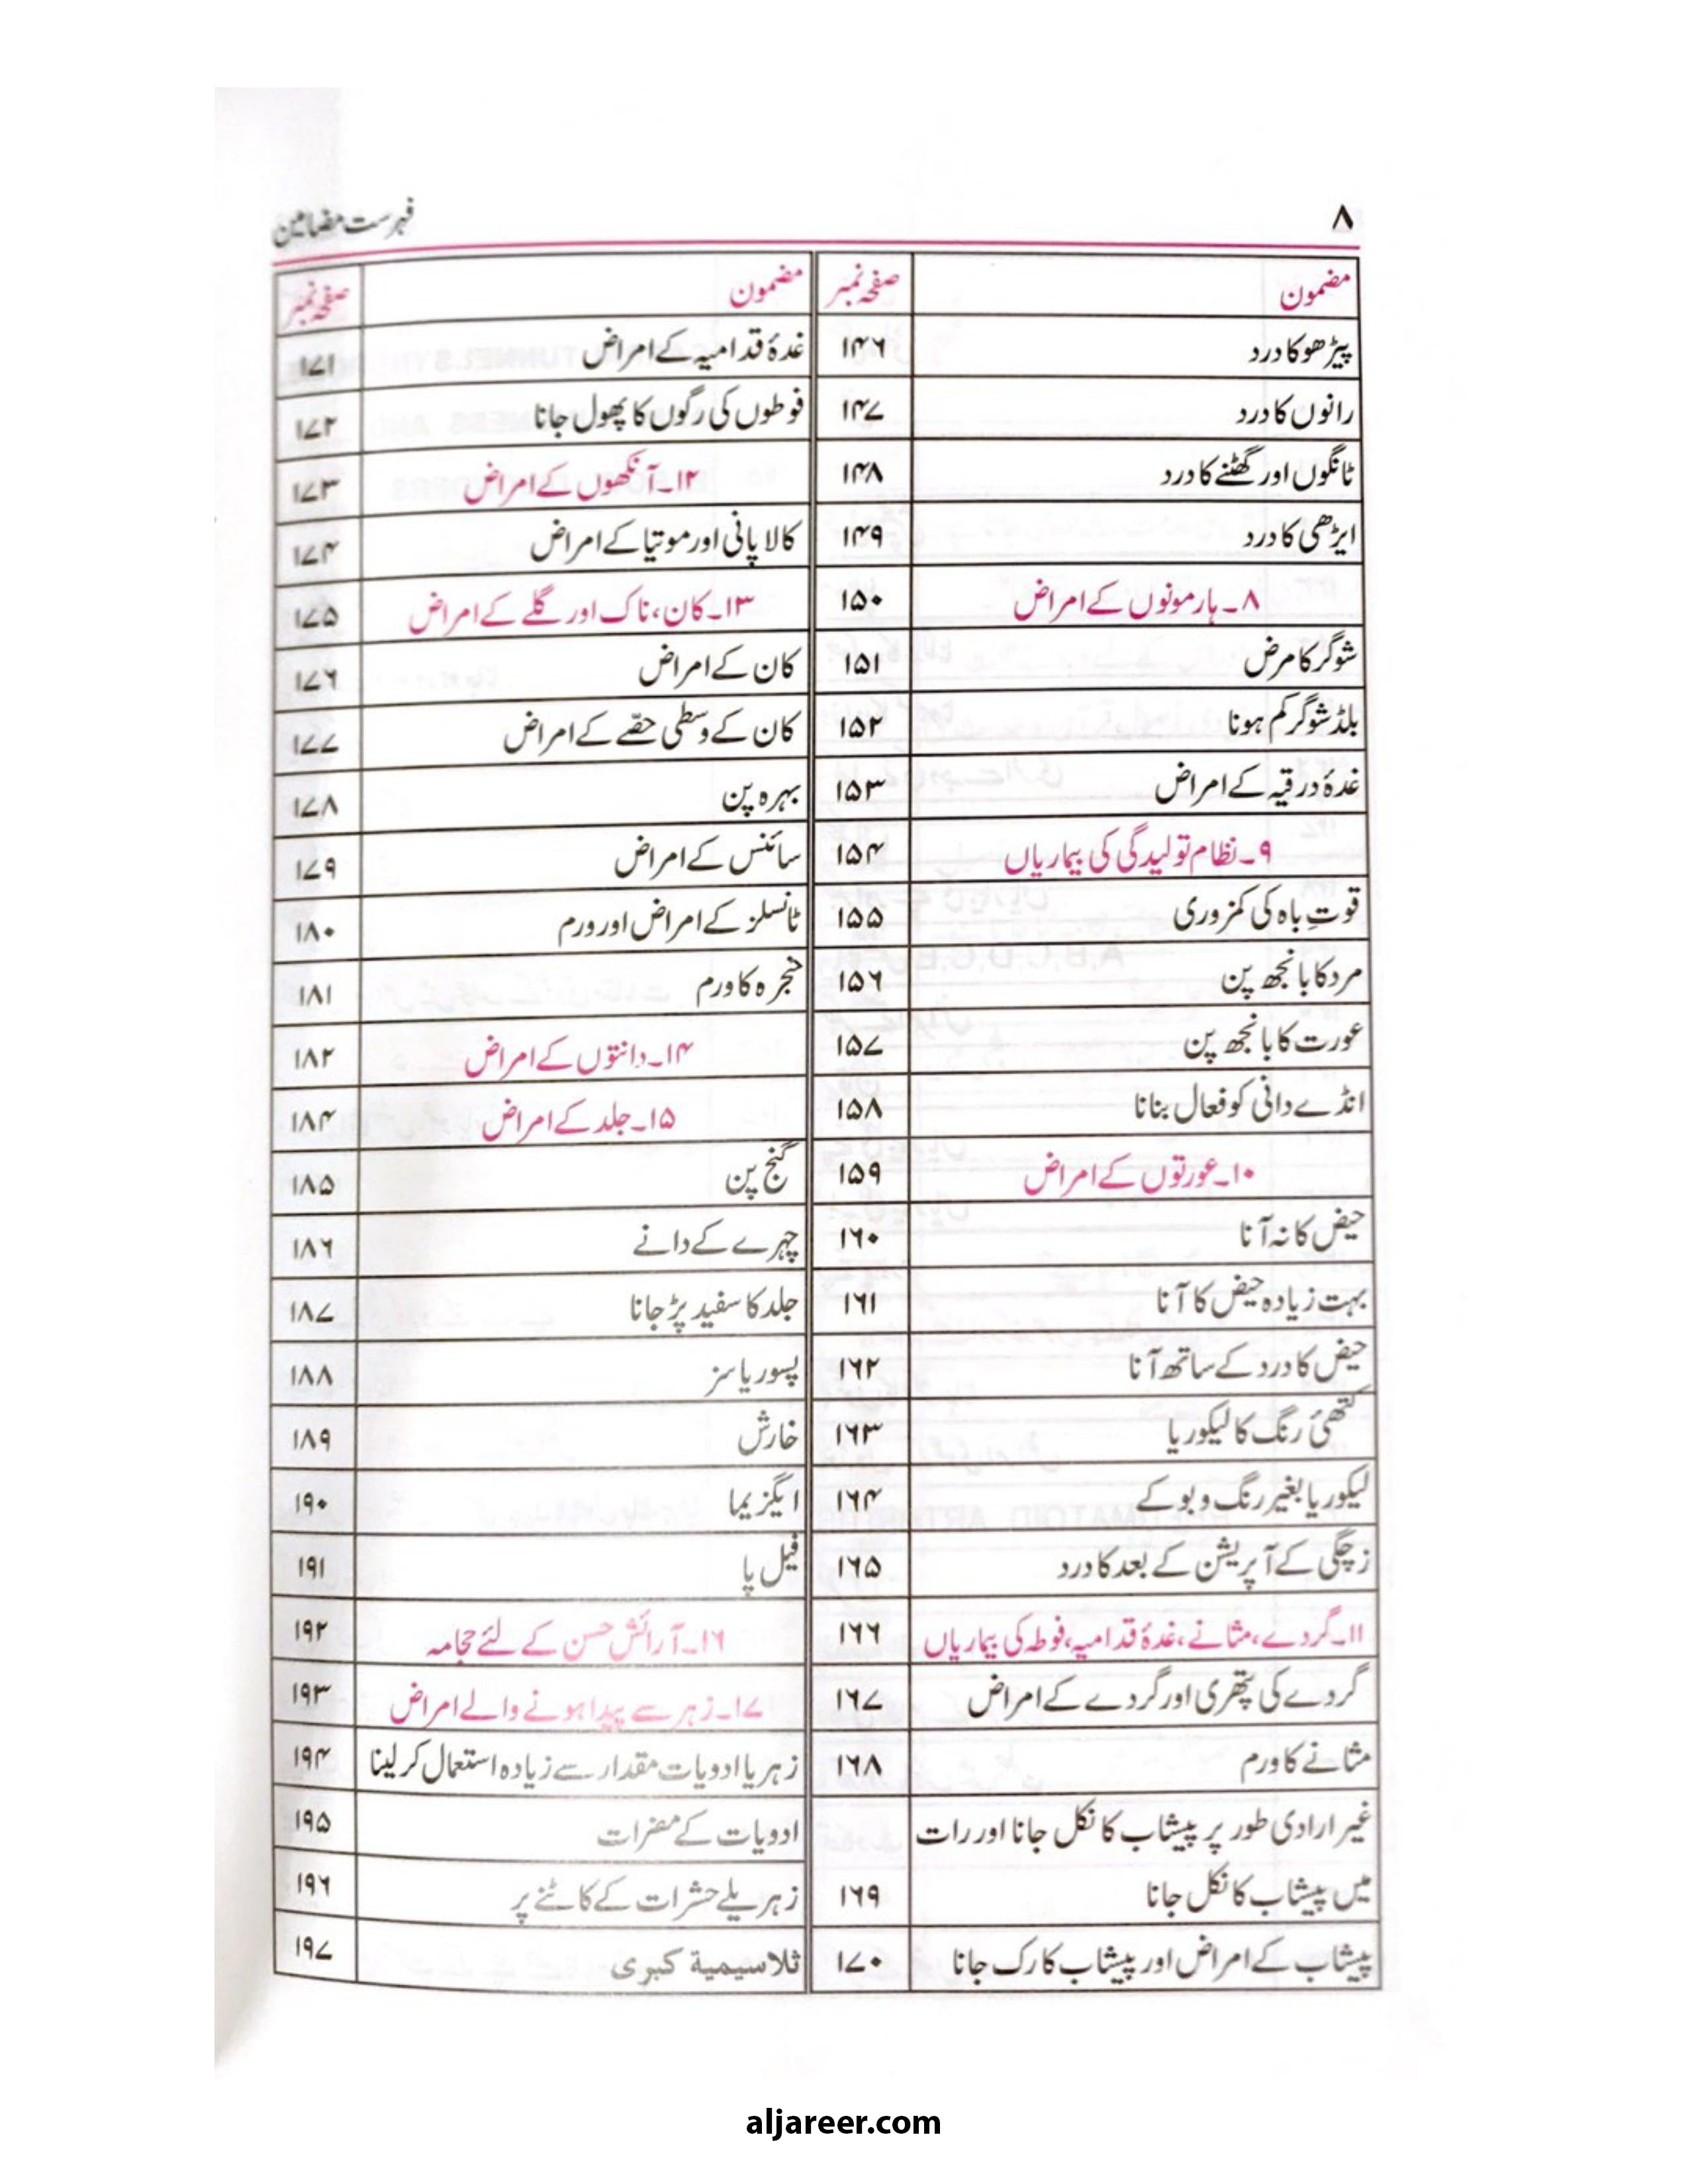 ۸
فہرست مضامین
مضمون صفحہ نمبر
پیڑھو کا درد ۱۴۶
رانوں کا درد ۱۴۷
ٹانگوں اور گھٹنے کا درد ۱۴۸
ایڑھی کا درد ۱۴۹
۸۔ ہارمونوں کے امراض ۱۵۰
شوگر کا مرض ۱۵۱
بلڈ شوگر کم ہونا ۱۵۲
غدۂ درقیہ کے امراض ۱۵۳
۹۔ نظام تولیدگی کی بیماریاں ۱۵۴
قوتِ باہ کی کمزوری ۱۵۵
مرد کا بانجھ پن ۱۵۶
عورت کا بانجھ پن ۱۵۷
انڈے دانی کو فعال بنانا ۱۵۸
۱۰۔ عورتوں کے امراض ۱۵۹
حیض کا نہ آنا ۱۶۰
بہت زیادہ حیض کا آنا ۱۶۱
حیض کا درد کے ساتھ آنا ۱۶۲
کتھئ رنگ کا لیکوریا ۱۶۳
لیکوریا بغیر رنگ و بو کے ۱۶۴
زچگی کے آپریشن کے بعد کا درد ۱۶۵
۱۱۔ گردے، مثانے، غدۂ قدامیہ، فوطہ کی بیماریاں ۱۶۶
گردے کی پتھری اور گردے کے امراض ۱۶۷
مثانے کا ورم ۱۶۸
غیر ارادی طور پر پیشاب کا نکل جانا اور رات
میں پیشاب کا نکل جانا ۱۶۹
پیشاب کے امراض اور پیشاب کا رک جانا ۱۷۰
مضمون صفحہ نمبر
غدۂ قدامیہ کے امراض ۱۷۱
فوطوں کی رگوں کا پھول جانا ۱۷۲
۱۲۔ آنکھوں کے امراض ۱۷۳
کالا پانی اور موتیا کے امراض ۱۷۴
۱۳۔ کان، ناک اور گلے کے امراض ۱۷۵
کان کے امراض ۱۷۶
کان کے وسطی حصّے کے امراض ۱۷۷
بہرہ پن ۱۷۸
سائنس کے امراض ۱۷۹
ٹانسلز کے امراض اور ورم ۱۸۰
حنجرہ کا ورم ۱۸۱
۱۴۔ دانتوں کے امراض ۱۸۲
۱۵۔ جلد کے امراض ۱۸۴
گنج پن ۱۸۵
چہرے کے دانے ۱۸۶
جلد کا سفید پڑ جانا ۱۸۷
پسوریاسز ۱۸۸
خارش ۱۸۹
ایگزیما ۱۹۰
فیل پا ۱۹۱
۱۶۔ آرائش حسن کے لئے حجامہ ۱۹۲
۱۷۔ زہر سے پیدا ہونے والے امراض ۱۹۳
زہر یا ادویات مقدار سے زیادہ استعمال کر لینا ۱۹۴
ادویات کے مضرات ۱۹۵
زہریلے حشرات کے کاٹنے پر ۱۹۶
ثلاسیمیة کبری ۱۹۷
aljareer.com